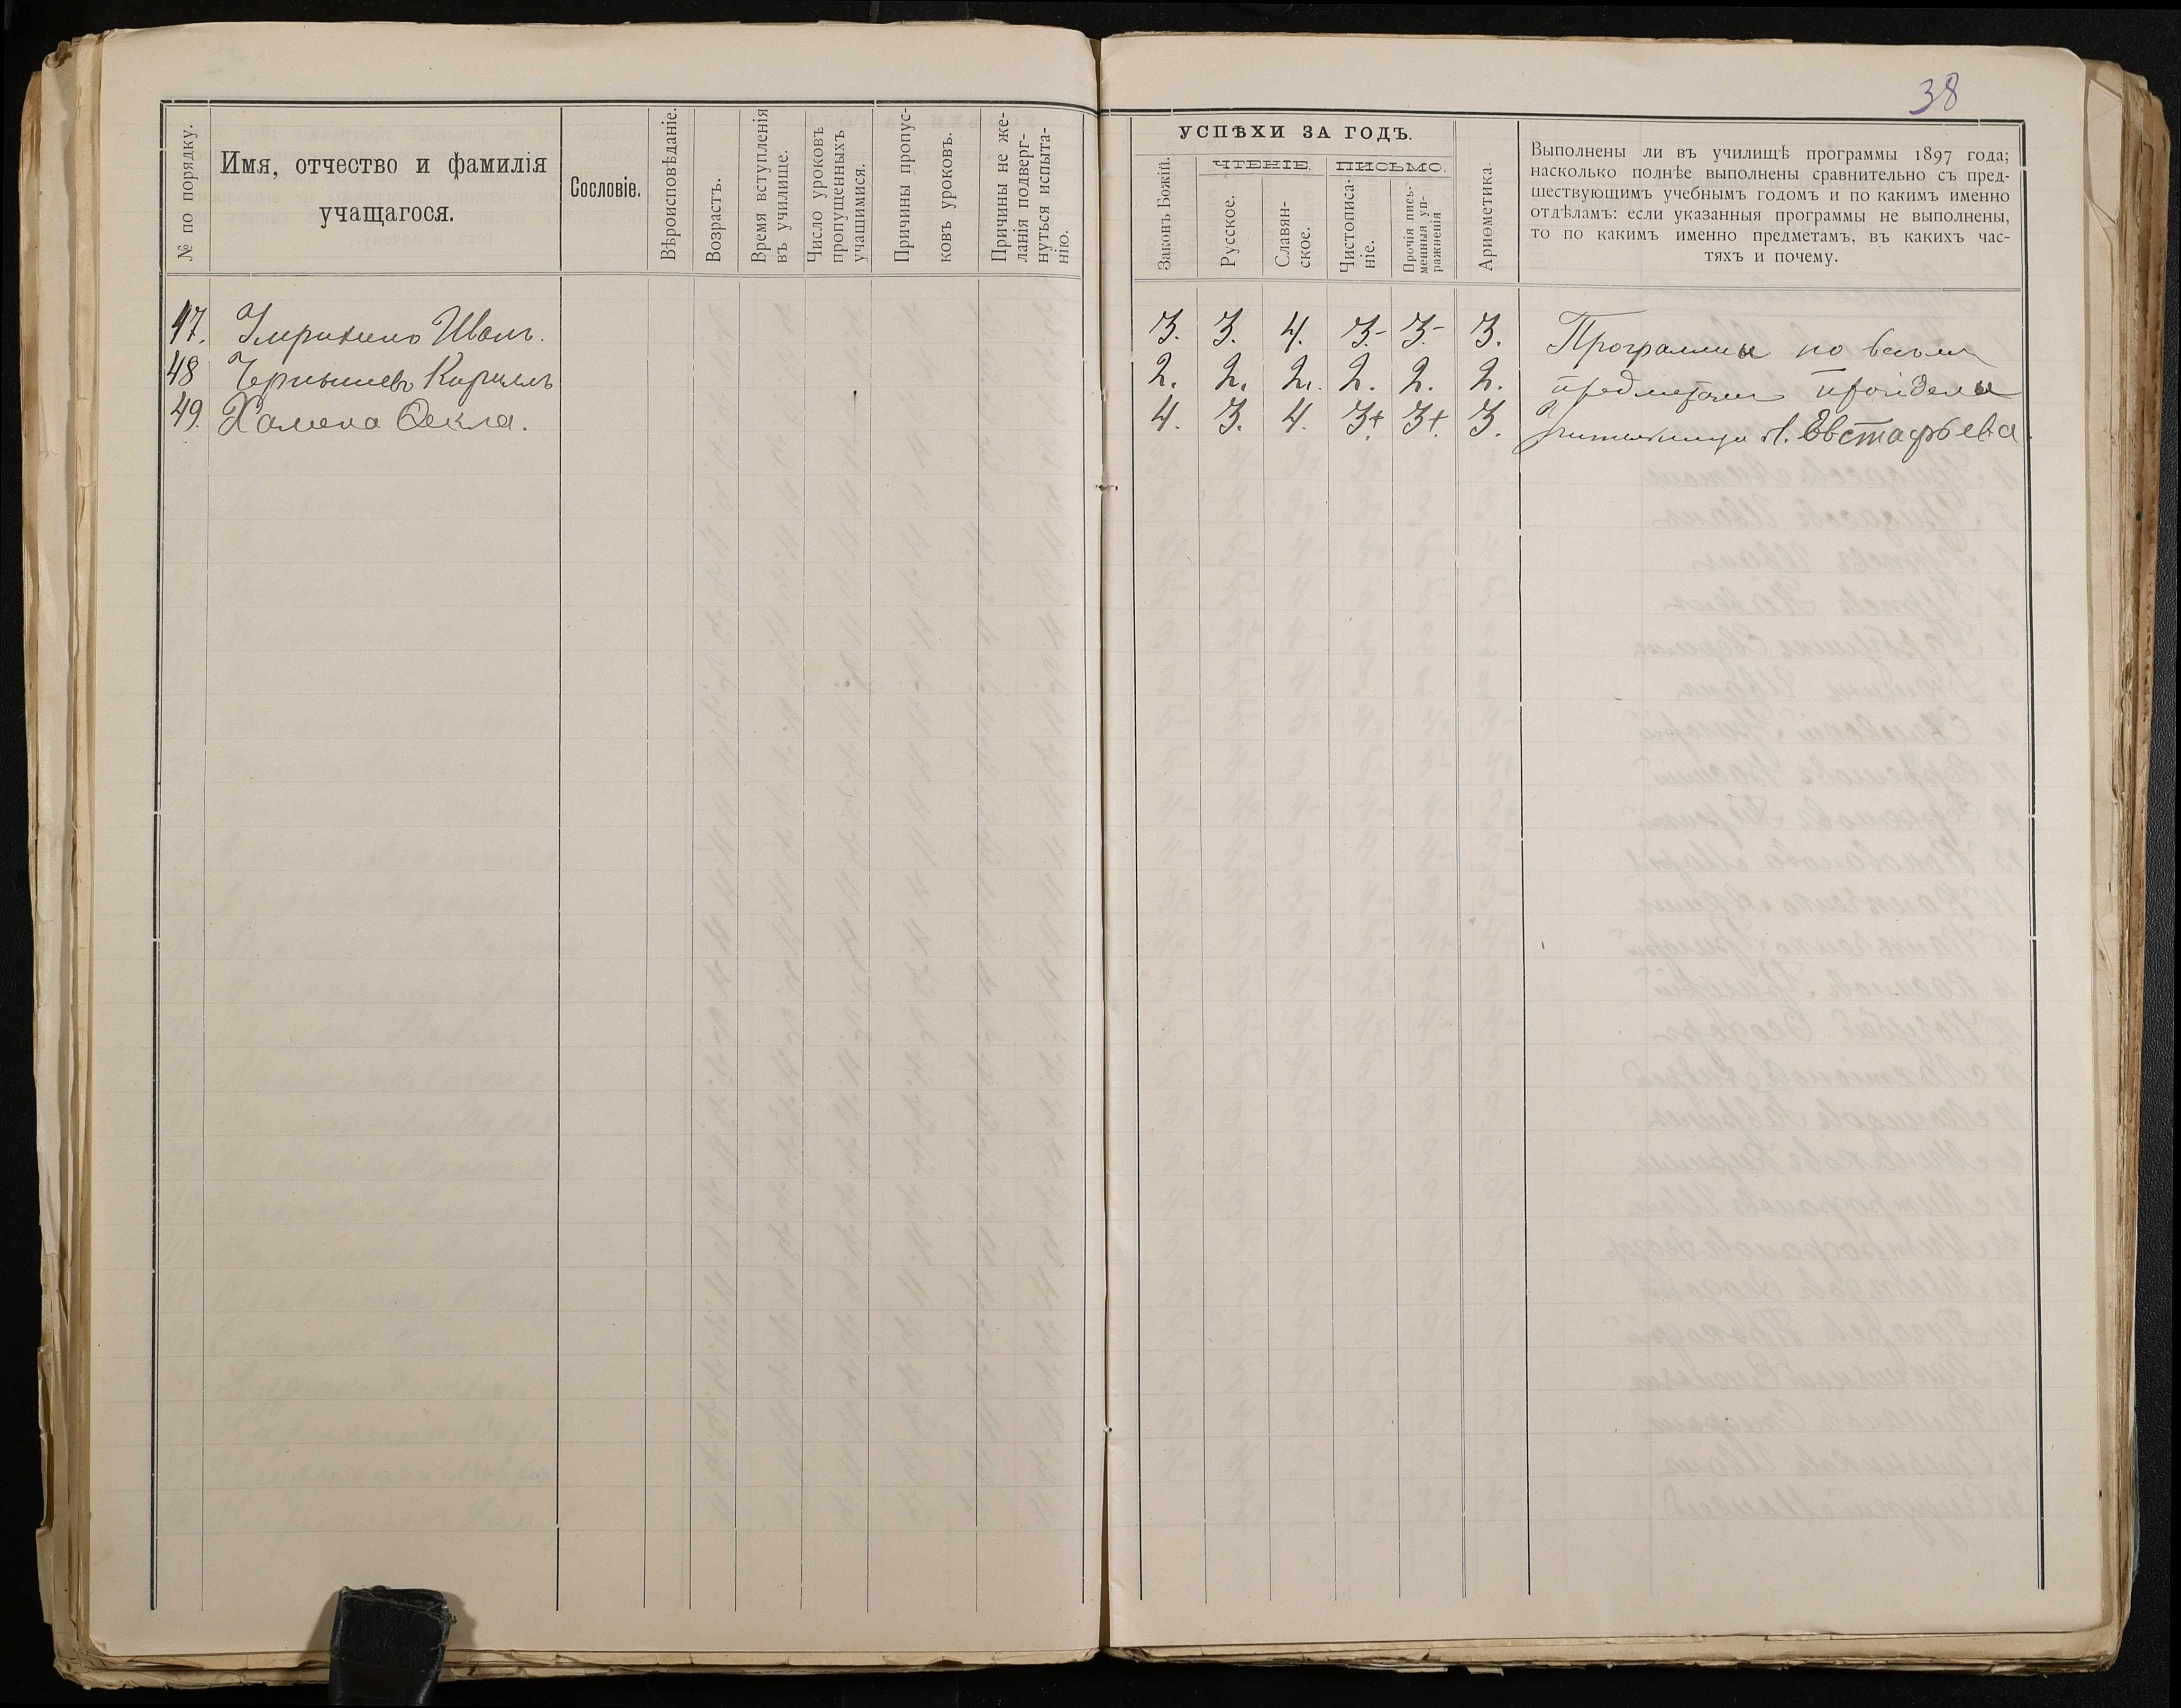 38
№ по порядку.
Имя, отчество и фамилія
учащагося.
Сословіе.
Вѣроисповѣданіе.
Возрастъ.
Время вступленія
въ училище.
Число уроковъ
пропущенныхъ
учащимися.
Причины пропус-
ковъ уроковъ.
Причины не же-
ланія подверг-
нуться испыта-
нію.
УСПѢХИ ЗА ГОДЪ.
Законъ Божій.
ЧТЕНІЕ.
Русское.
Славян-
ское.
ПИСЬМО.
Чистописа-
ніе.
Прочія пись-
менныя уп-
ражненія
Ариѳметика.
Выполнены ли въ училищѣ программы 1897 года;
насколько полнѣе выполнены сравнительно съ пред-
шествующимъ учебнымъ годомъ и по какимъ именно
отдѣламъ: если указанныя программы не выполнены,
то по какимъ именно предметамъ, въ какихъ час-
тяхъ и почему.
47. Иванъ. 3. 3. 4. 3.- 3.- 3. Программы по всѣмъ
48 Чернышевъ Кириллъ 2. 2. 2. 2. 2. 2. предметамъ пройдены
49. Ѳекла. 4. 3. 4. 3+. 3+. 3. Учительница Евстафьева.